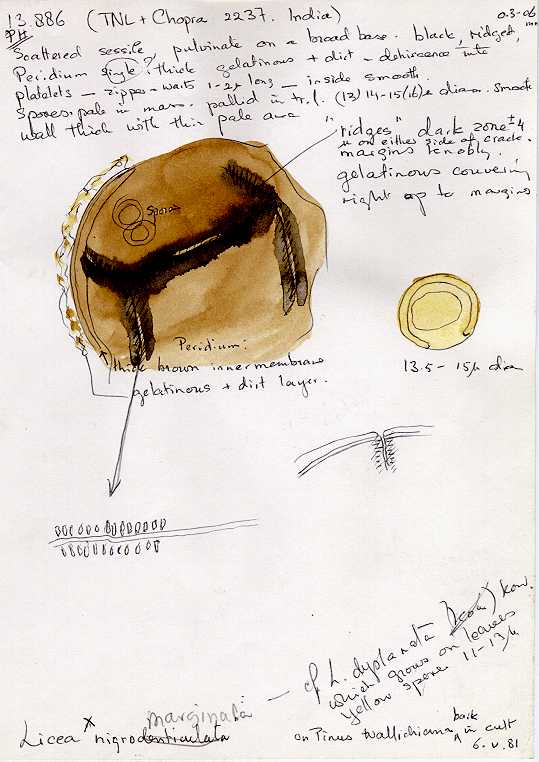 13.886 (TNL + Chopra 2237. India)
0.3-06
PH
Scattered sessile, pulvinate on a broad base. black, ridged,
Peridium single? thick gelatinous + dirt - dehiscence into
platelets - zipper-waits 1-2µ long - inside smooth.
Spores: pale in mass. pallid in tr. l. (13) 14-15(16)µ diam. smooth
wall thick with thin pale area
"ridges" dark zone ±4
µ on either side of crack.
margins knobly.
gelatinous couvering
right up to margins
Spores
Peridium:
thick brown inner membrane
gelatinous + dirt layer.
13.5 - 15µ dia
cf L. dyplaneta kow.
which grows on leaves
yellow spore 11-13µ
marginata
Licea x nigrodenticulata
on Pinus wallichiana bark in cult
6.v.81